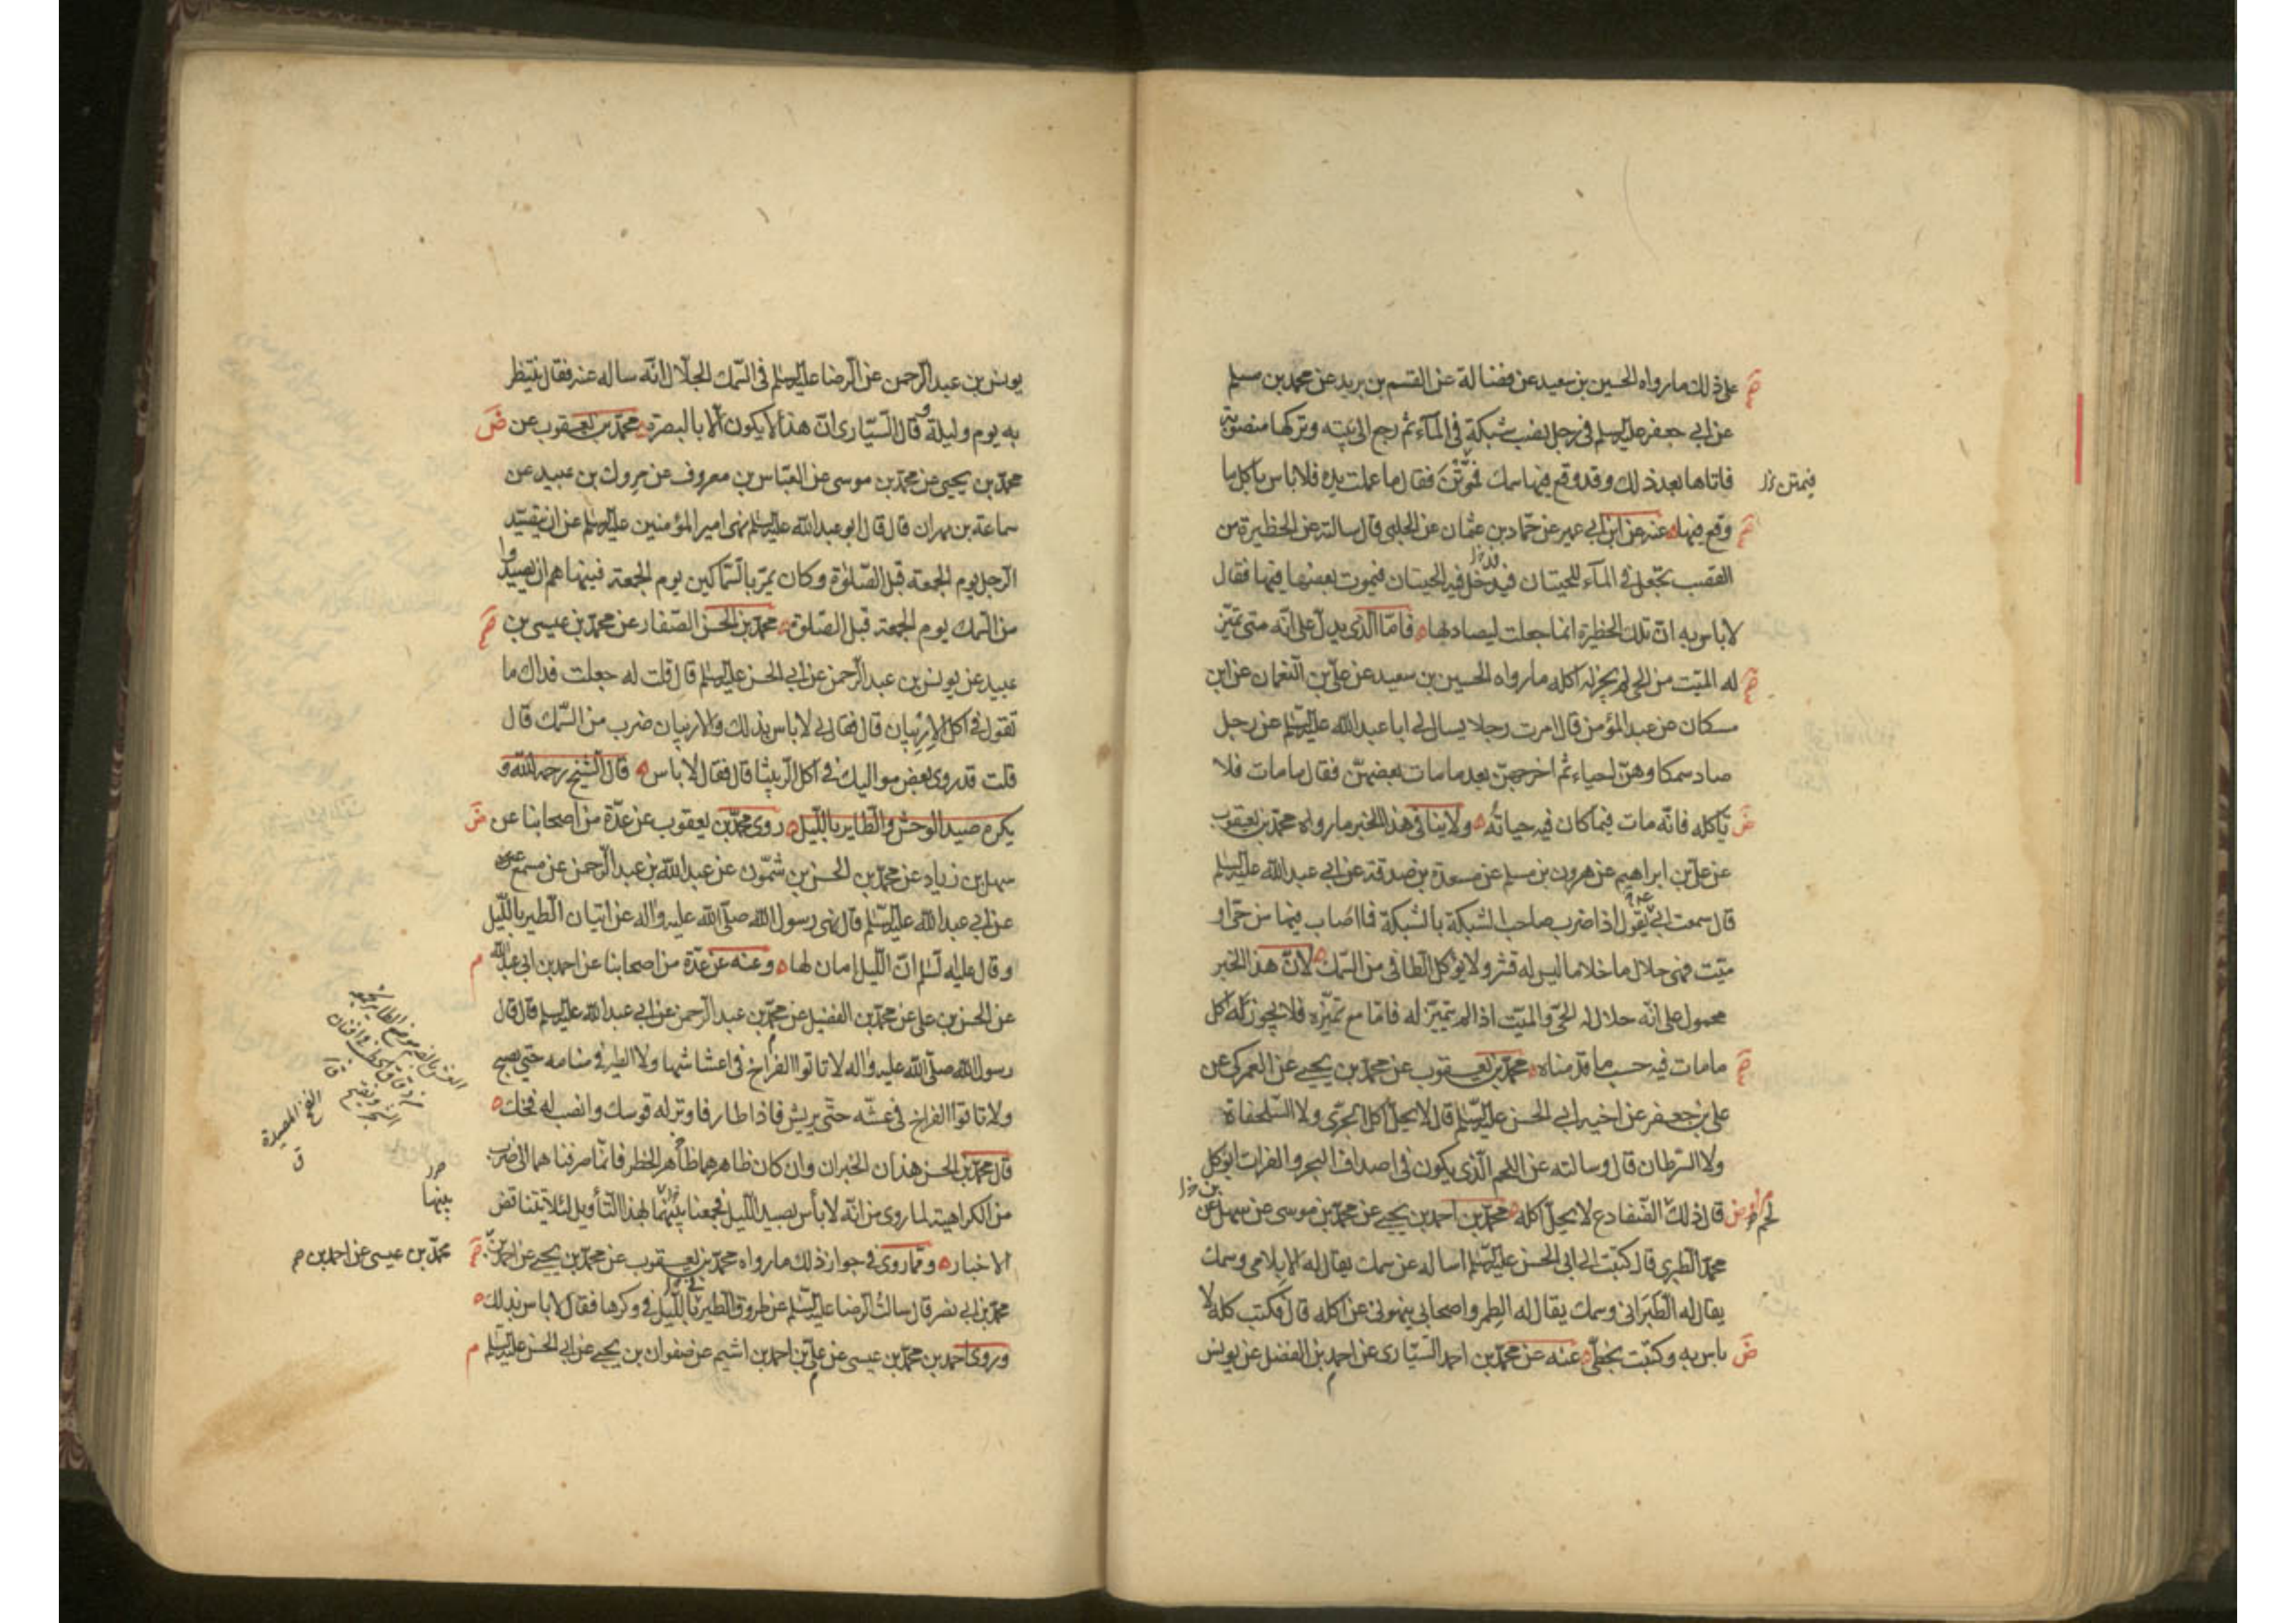 على ذلك ما رواه الحسين بن سعيد عن فضالة عن القسم بن بريد عن محمد بن مسلم
عن ابي جعفر عليه السلم في رجل نصب شبكة في المآء ثم رجع الى بيته وتركها منصوبة
فاتاها بعد ذلك وقد وقع فيها سمك فموّتن فقال ما عملت يده فلا باس باكل ما
فيمتن
وقع فيها عنه عن ابن ابي عمير عن حماد بن عثمان عن الحلبي قال سالته عن الحظيرة من
القصب تجعل في المآء للحيتان فيدخل فيه الحيتان فيموت بعضها فيها فقال
لا باس به ان تلك الحظيرة انما جعلت ليصاد بها فامّا الذى يدل على انّه متى تميّز
له الميّت من الحي لم يجز له اكله ما رواه الحسين بن سعيد عن علي بن النعمان عن ابن
مسكان عن عبد المؤمن قال امرت رجلا يسال لي ابا عبد الله عليه السلم عن رجل
صاد سمكا وهنّ احياء ثم اخرجهنّ بعد ما مات بعضهنّ فقال ما مات فلا
تاكله فانّه مات فيما كان فيه حياته ولا ينافى هذا الخبر ما رواه محمد بن يعقوب
عن علي بن ابراهيم عن هرون بن مسلم عن مسعدة بن صدقة عن ابي عبد الله عليه السلم
قال سمعت ابي يقول اذا ضرب صاحب الشبكة بالشبكة فما اصاب فيها من حىّ او
ميّت فهى حلال ما خلا ما ليس له قشر ولا يؤكل الطافى من السمك لانّ هذا الخبر
محمول على انّه حلال له الحىّ والميّت اذا لم يتميّز له فامّا مع تميّزه فلا يجوز له اكل
ما مات فيه حسب ما قدمناه محمد بن يعقوب عن محمد بن يحيى عن العمركى عن
على بن جعفر عن اخيه ابي الحسن عليه السلم قال لا يحل اكل الجرّى ولا السلحفاة
ولا السّرطان قال وسالته عن اللحم الّذى يكون في اصداف البحر والفرات ايؤكل
قال ذلك لحم الضفادع لا يحل اكله محمد بن احمد بن يحيى عن محمد بن موسى عن سهل عن
محمد الطبرى قال كتبت الى ابي الحسن عليه السلم اساله عن سمك يقال له الابلامى وسمك
يقال له الطبرانى وسمك يقال له الطمر واصحابي ينهونى عن اكله قال فكتب كله لا
باس به وكتبت بخطّى عنه عن محمد بن احمد السّيّارى عن احمد بن الفضل عن يونس
يونس بن عبد الرحمن عن الرضا عليه السلم في السّمك الجلّال انّه ساله عنه فقال ينتظر
به يوم وليلة وقال السّيّارى انّ هذا لا يكون الّا بالبصرة محمد بن يعقوب عن
محمد بن يحيى عن محمد بن موسى عن العبّاس بن معروف عن مروك بن عبيد عن
سماعة بن مهران قال قال ابو عبد الله عليه السلم نهى امير المؤمنين عليه السلم عن ان يتصيّد
الرجل يوم الجمعة قبل الصّلوة وكان يمرّ بالسّمّاكين يوم الجمعة فينهاهم ان يصيدوا
من السّمك يوم الجمعة قبل الصّلوة محمد بن الحسن الصّفار عن محمد بن عيسى بن
عبيد عن يونس بن عبد الرحمن عن ابي الحسن عليه السلم قال قلت له جعلت فداك ما
تقول في اكل الاربيان قال فقال لي لا باس بذلك والاربيان ضرب من السّمك قال
قلت قد روى بعض مواليك في اكل الرّبيثا قال فقال لا باس قال الشيخ رحمه الله و
يكره صيد الوحش والطاير باللّيل روى محمد بن يعقوب عن عدّة من اصحابنا عن
سهل بن زياد عن محمد بن الحسن بن شمّون عن عبد الله بن عبد الرحمن عن مسمع
عن ابي عبد الله عليه السلم قال نهى رسول الله صلّى الله عليه واله عن اتيان الطير باللّيل
وقال عليه السلم انّ اللّيل امان لها وعنه عن عدّة من اصحابنا عن احمد بن ابي عبد الله
عن الحسن بن على عن محمد بن الفضيل عن محمد بن عبد الرحمن عن ابي عبد الله عليه السلم قال قال
رسول الله صلّى الله عليه واله لا تاتوا الفراخ في اعشاشها ولا الطير في منامه حتى يصبح
ولا تاتوا الفراخ في عشّه حتّى يريش فاذا طار فاوتر له قوسك وانصب له فخّك
قال محمد بن الحسن هذان الخبران وان كان ظاهرهما ظاهر الحظر فانّما صرفناهما الى ضرب
من الكراهية لما روى من انّه لا بأس بصيد اللّيل فجمعنا بينهما لهذا التأويل لئلا تتناقض
الاخبار وممّا روى في جواز ذلك ما رواه محمد بن يعقوب عن محمد بن يحيى عن احمد بن
محمد بن ابي نصر قال سالت الرضا عليه السلم عن طروق الطير باللّيل في وكرها فقال لا باس بذلك
وروى احمد بن محمد بن عيسى عن على بن احمد بن اشيم عن صفوان بن يحيى عن ابي الحسن عليه السلم
الفخ المصيدة
ق
بينها
محمد بن عيسى عن احمد بن